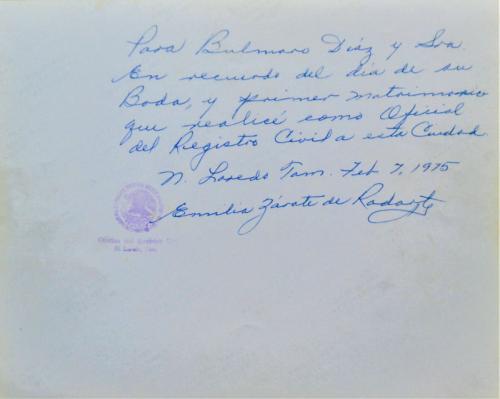 Para Bulmaro Díaz y Sra.
En recuerdo del día de su
Boda, y primer matrimonio
que realicé como Oficial
del Registro Civil a esta Ciudad.
N. Laredo Tam. Feb 7, 1975
Emilia Zárate de
Oficial del Registro
N. Laredo, Tam.